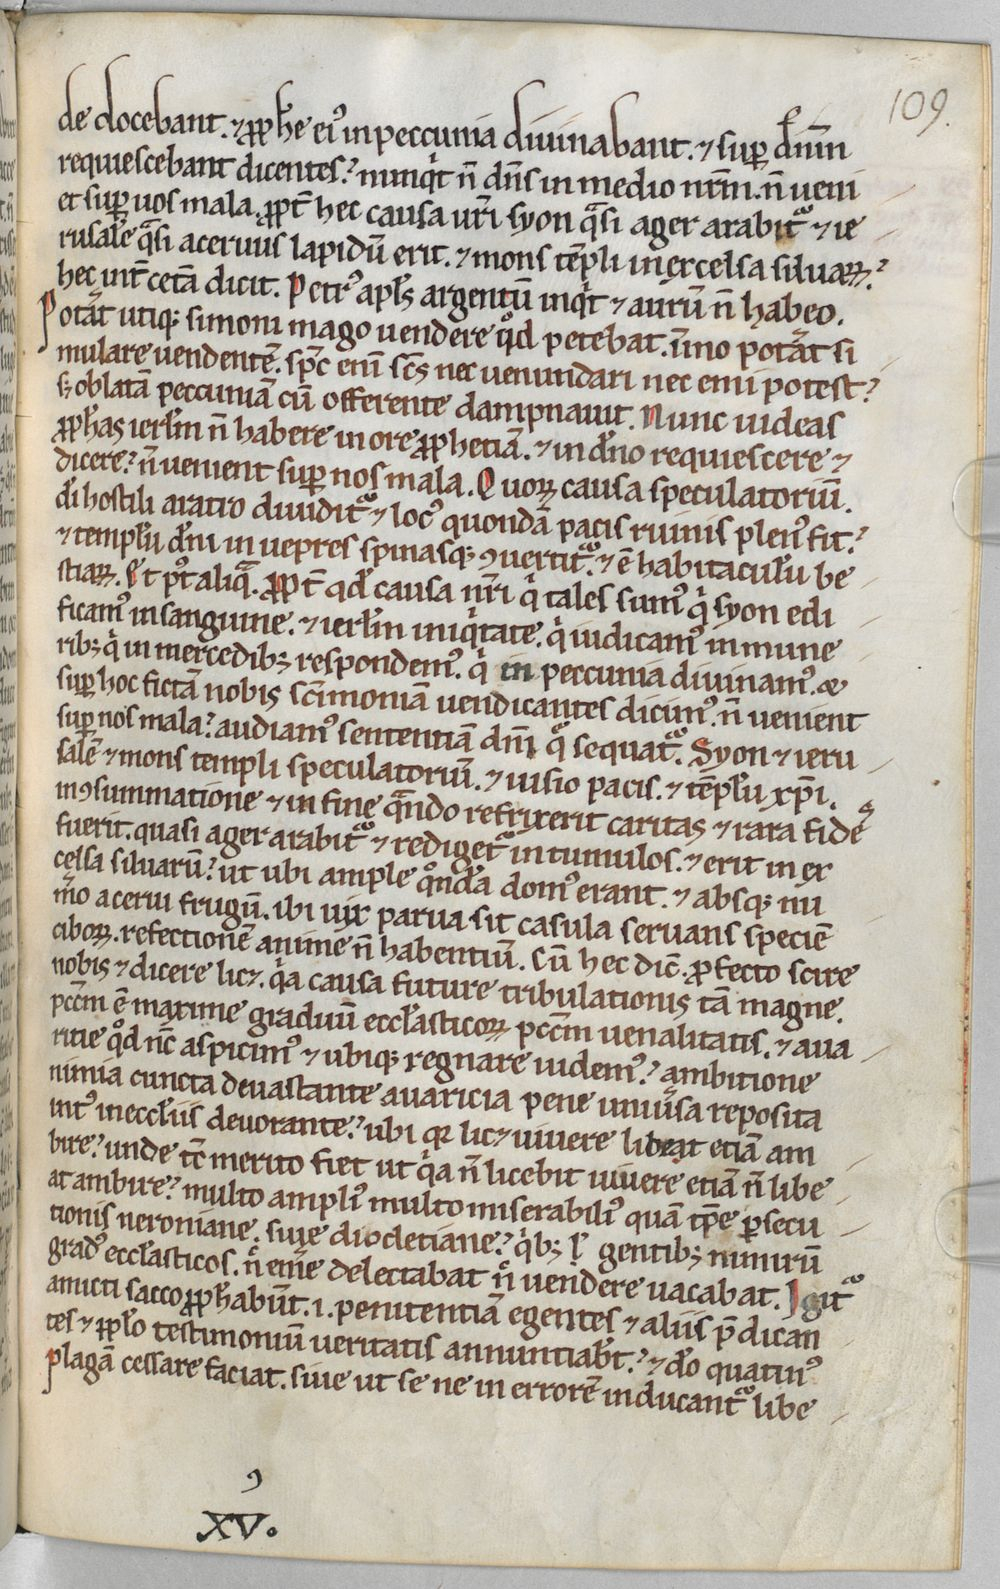 109.
de docebant. ⁊ ꝓph̄e eiꝰ in peccunia diuinabant. ⁊ suꝑ dn̄m
requiescebant dicentes? nunqͥt n̄ dn̄s in medio nr̄m. n̄ ueni
et suꝑ uos mala. ꝓpt̄ hec causa ur̄i syon qᷓsi ager arabit᷑ ⁊ ie
rusalē qᷓsi aceruus lapidū erit. ⁊ mons tēpli in excelsa siluaꝝ?
hec int̄ cetā dicit. Petrꝰ apl̄s argentū inqͥt ⁊ aurū n̄ habeo.
Potᷓat utiqꝫ simoni mago uendere qͦd petebat. īmo potᷓat si
mulare uendentē. sp̄c eni sc̄s nec uenundari nec emi potest?
sꝫ oblatā peccuniā cū offerente dampnauit. Nunc uideas
ꝓph̄as ierl̄m n̄ habere in ore ꝓphetiā. ⁊ in dn̄o requiescere ⁊
dicere? n̄ uenient suꝑ nos mala. Quoꝝ causa speculatoriū
dī hostili aratro diuidit᷑ ⁊ locꝰ quondā pacis ruinis plenꝰ fit?
⁊ templū dn̄i in uepres spinasqꝫ ꝯuertit᷑. ⁊ ē habitaculū be
stiaꝝ. Et pꝰt aliqᷓ. ꝓpt̄ qd̄ causa nr̄i qͥ tales sumꝰ qͥ syon edi
ficamꝰ in sanguine. ⁊ ierl̄m iniqͥtate. qͥ iudicamꝰ in mune
ribꝫ qͥ in mercedibꝫ respondemꝰ. qͥ in peccunia diuinamꝰ. ⁊
suꝑ hoc fictā nobis sc̄imoniā uendicantes dicimꝰ. n̄ uenient
suꝑ nos mala? audiamꝰ sententiā dn̄i qͦ sequat᷑. Syon ⁊ ieru
salē ⁊ mons templi speculatoriū. ⁊ uisio pacis. ⁊ tēplū xp̄i.
in ꝯsummatione ⁊ in fine qᷓndo refrixerit caritas ⁊ rara fideᷤ
fuerit. quasi ager arabit᷑ ⁊ rediget᷑ in tumulos. ⁊ erit in ex
celsa siluarū? ut ubi ample qͦnda domꝰ erant. ⁊ absqꝫ nu
mͦo acerui frugū. ibi uix parua sit casula seruans speciē
ciboꝝ. refectionē anime n̄ habentiū. Cū hec dic̄. ꝓfecto scire
nobis ⁊ dicere licꝫ. qͥa causa future tribulationis tā magne.
pcc̄m ē maxime graduū eccl̄asticoꝝ pcc̄m uenalitatis. ⁊ aua
ritie qͦd nc̄ aspicimꝰ ⁊ ubiqꝫ regnare uidemꝰ? ambitione
nimia cuncta deuastante auaricia pene uniūsa reposita
intꝰ in eccl̄iis deuorante? ubi qꝛ licꝫ uiuere libeat etiā am
bire? unde tc̄ merito fiet ut qͥa n̄ licebit uiuere etiā n̄ libe
at ambire? multo ampliꝰ multo miserabiliꝰ quā tp̄e ꝑsecu
tionis neroniane. siue diocletiane? qͥbꝫ ł gentibꝫ nimirū
gradꝰ eccl̄asticos. n̄ emͤe delectabat n̄ uendere uacabat. Igit᷑
amicti sacco ꝓph̄abūt. i. penitentiā egentes ⁊ aliis p̄dican
tes ⁊ ppl̄o testimoniū ueritatis annuntiabt̄? ⁊ dō quatinꝰ
plagā cessare faciat. siue ut se ne in errorē inducant᷑ libe
XV.